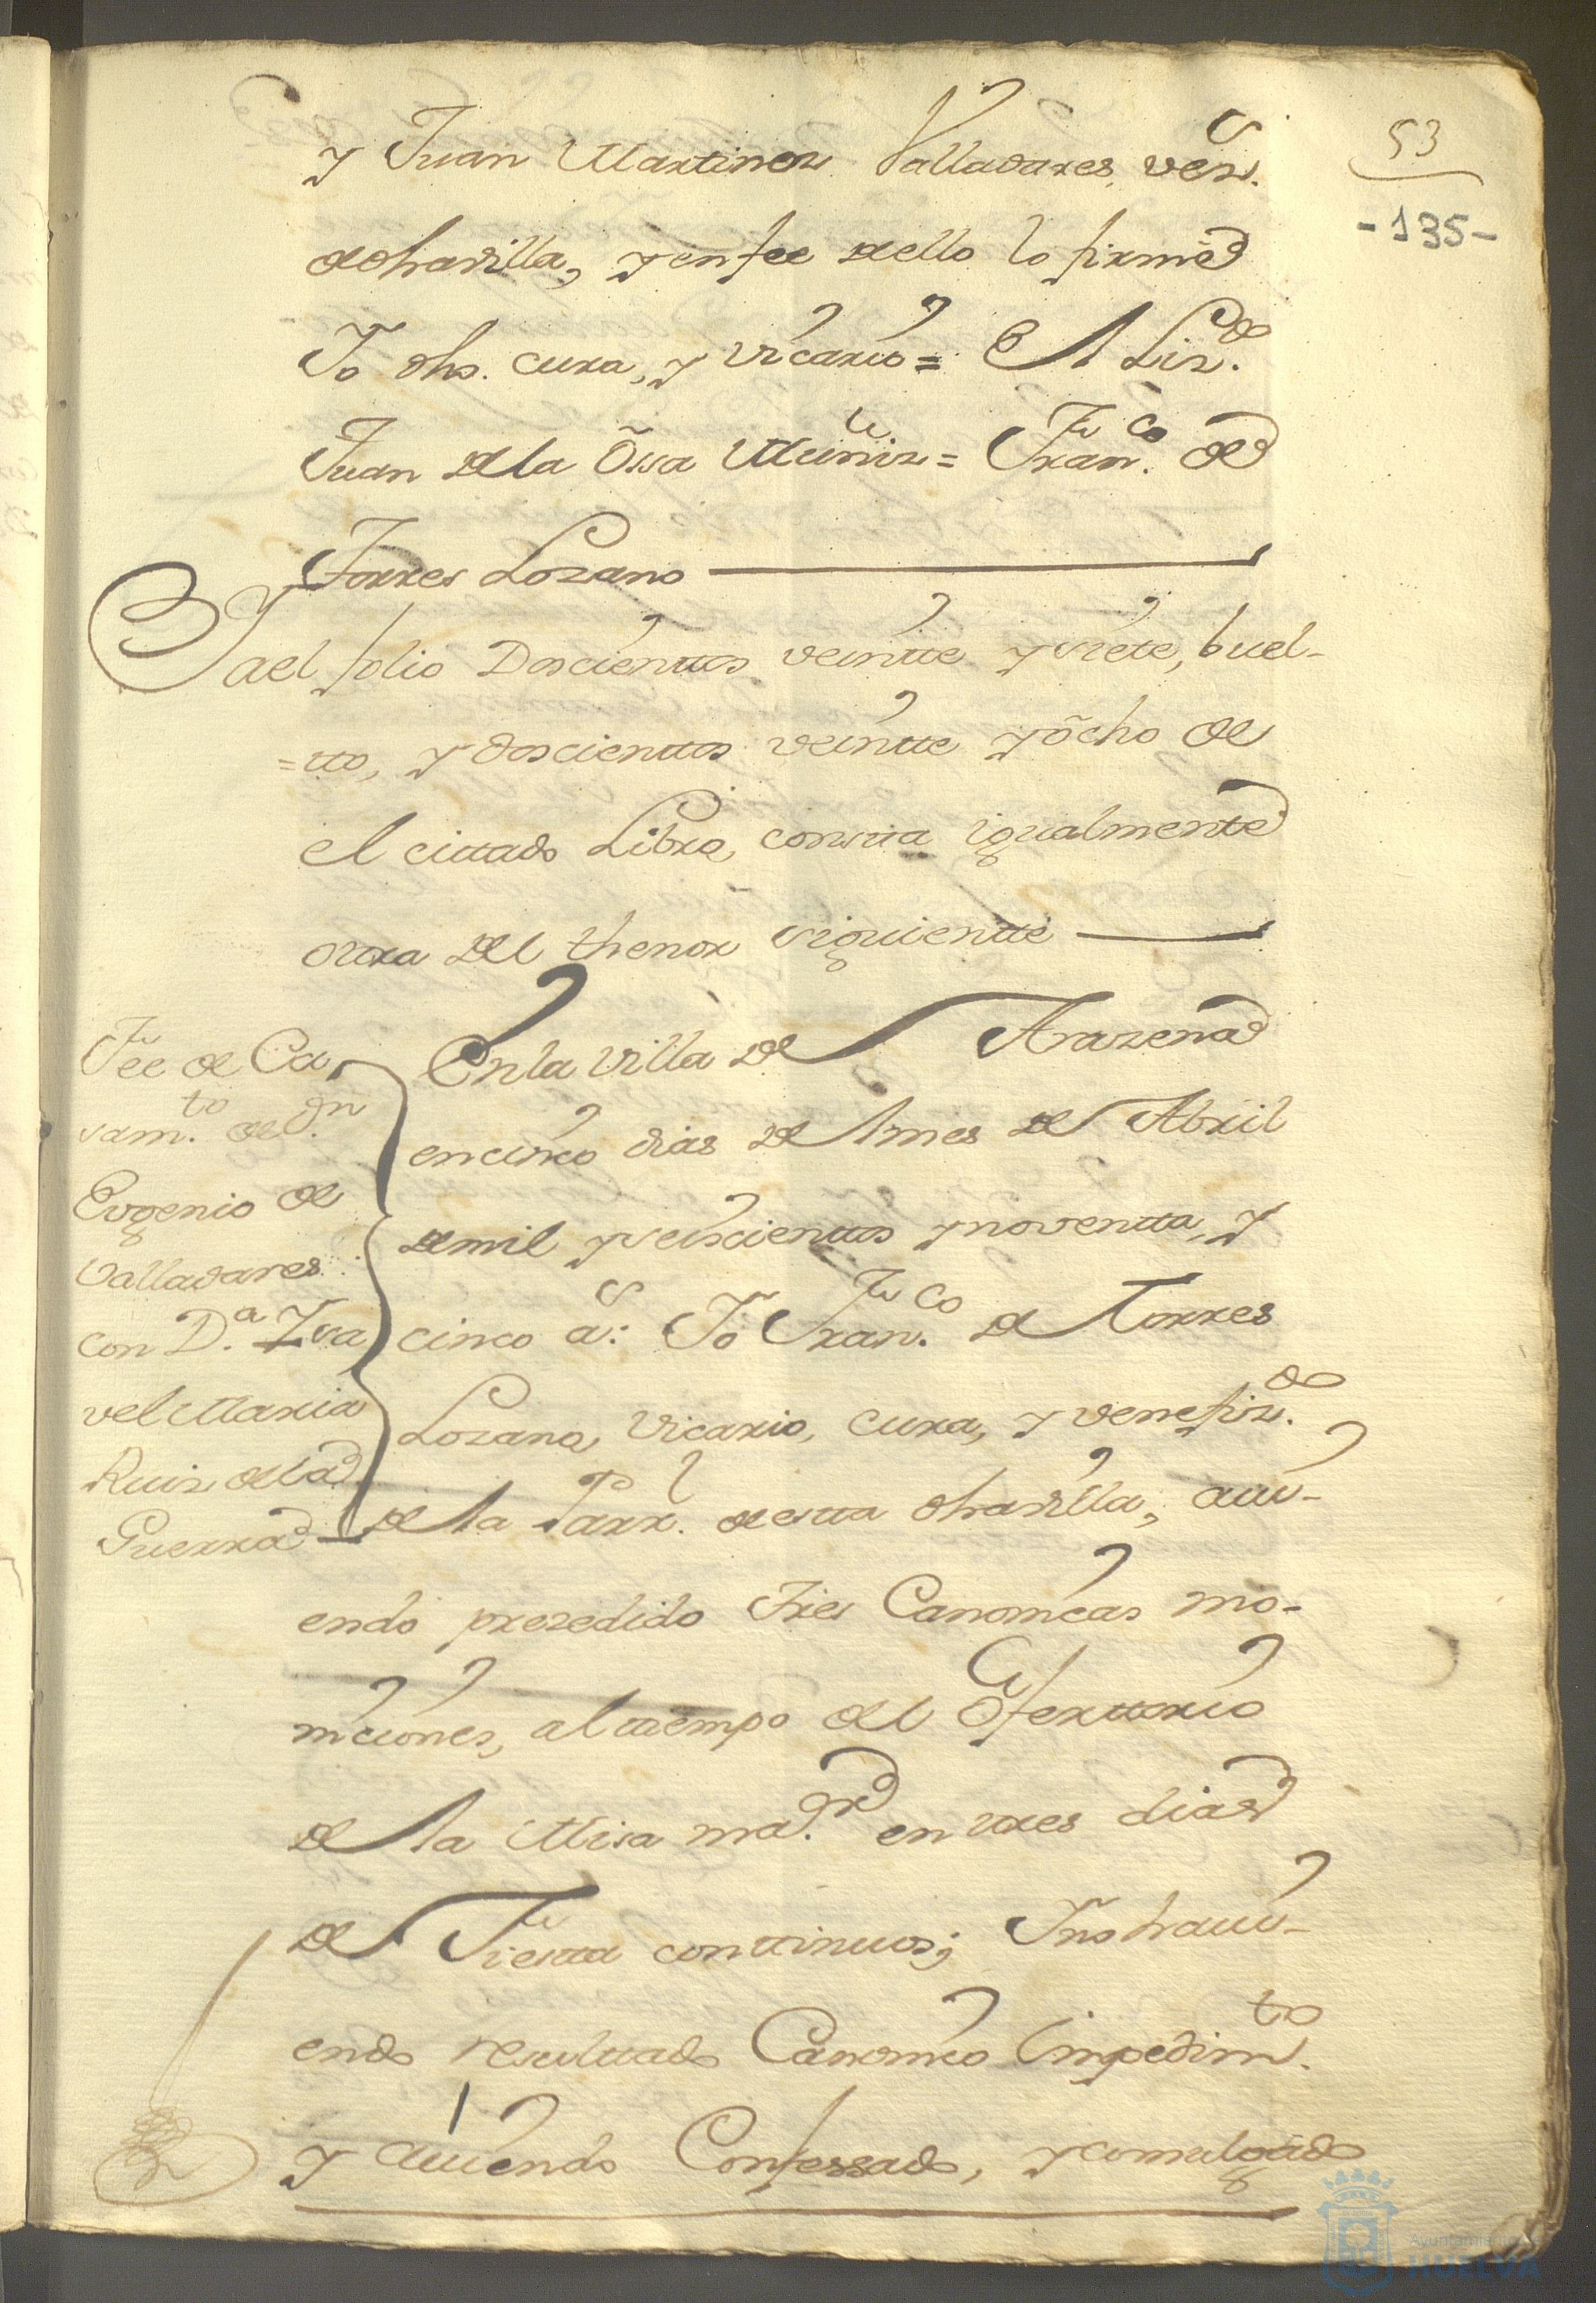 53
-135-
y Juan Martinez Valladares, vezs.
de dha villa, y en fee de ello lo firmé
Yo dho. cura, y Vicario = El Liz.do
Juan de la Ossa Muñiz = Fran.co de
Torres Lozano
Y a el folio Doscienttos veintte y siete, buel-
=tto, y doscienttos veintte y ocho de
el cittado Libro, constta igualmente
ottra del thenor siguientte
Fee de Ca
sam.to de D.n
Eugenio de
Valladares
con D.a Ysa
vel Maria
Ruiz de la
Guerra
En la Villa de Arazena
en cinco dias de el mes de Abril
de mil y seiscienttos y noventta, y
cinco a.s: Yo Fran.co de Torres
Lozano, Vicario, cura, y venefiz.do
de la Parr.l de estta dha villa, avi-
endo prezedido Tres Canonicas mo-
niciones, al ttiempo del Oferttorio
de la Misa ma.or en tres dias
de Fiestta conttinuos; Y no havi-
endo resulttado Canonico impedim.to
y aviendo Confessado, y comulgado
Ayuntamiento
HUELVA